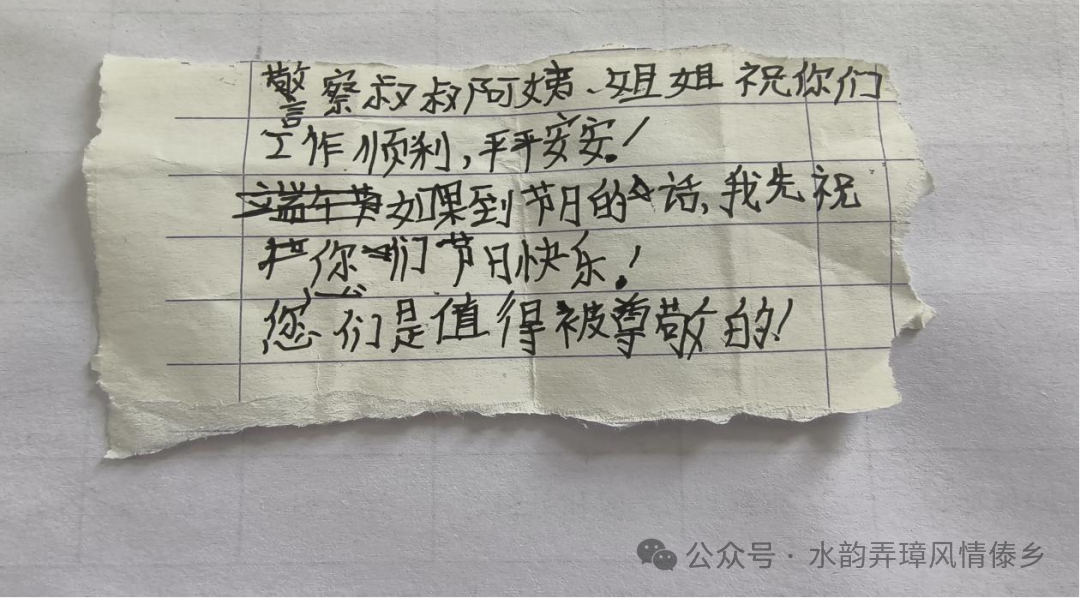 警察叔叔阿姨、姐姐祝你们
工作顺利,平平安安!
端午节如果到节日的话,我先祝
你们节日快乐!
您们是值得被尊敬的!
公众号·水韵弄璋风情傣乡